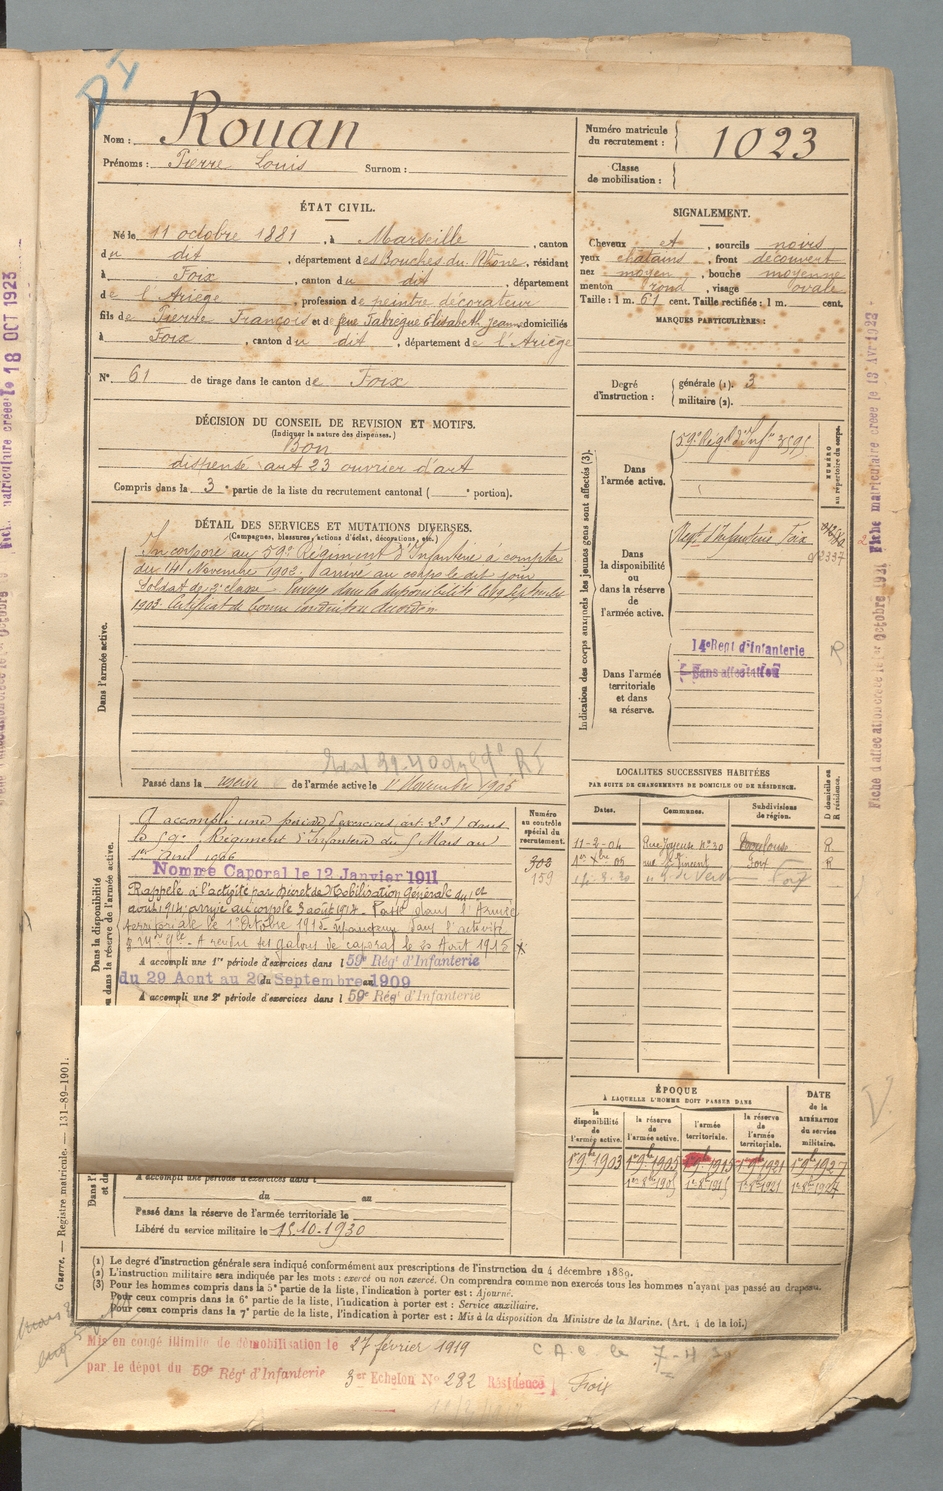 Nom : Rouan
Prénoms : Pierre Louis Surnom :
Numéro matricule du recrutement : 1023
Classe de mobilisation :
ÉTAT CIVIL.
Né le 11 octobre 1881, à Marseille, canton
du dit, département des Bouches du Rhône, résidant
à Foix, canton du dit, département
de l'Ariège, profession de peintre décorateur
fils de Pierre François et de feue Fabregue Elisabeth Jeanne domiciliés
à Foix, canton du dit, département de l'Ariège
N° 61 de tirage dans le canton de Foix
SIGNALEMENT.
Cheveux et, sourcils noirs
yeux chatains, front découvert
nez moyen, bouche moyenne
menton rond, visage ovale
Taille : 1 m. 61 cent. Taille rectifiée : 1 m. cent.
MARQUES PARTICULIÈRES :
Degré d'instruction : générale (1). 3
militaire (2).
DÉCISION DU CONSEIL DE REVISION ET MOTIFS.
(Indiquer la nature des dispenses.)
Bon
dispensé art 23 ouvrier d'art
Compris dans la 3e partie de la liste du recrutement cantonal ( e portion).
DÉTAIL DES SERVICES ET MUTATIONS DIVERSES.
(Campagnes, blessures, actions d'éclat, décorations, etc.)
Dans l'armée active.
Incorporé au 59e Régiment d'Infanterie à compter
du 14 Novembre 1902. arrivé au corps le dit jour
Soldat de 2e classe. Envoyé dans la disponibilité le 19 Septembre
1903. Certificat de bonne conduite accordé
Passé dans la réserve de l'armée active le 1r Novembre 1905
Indication des corps auxquels les jeunes gens sont affectés (3).
NUMÉRO au répertoire du corps.
Dans l'armée active.
59e Régt d'Infie 3595
Dans la disponibilité ou dans la réserve de l'armée active.
Regt d'Infanterie Foix
Dans l'armée territoriale et dans sa réserve.
14e Regt d'Infanterie
Sans affectation
R
LOCALITES SUCCESSIVES HABITÉES
PAR SUITE DE CHANGEMENTS DE DOMICILE OU DE RÉSIDENCE.
Dates. Communes. Subdivisions de région. D domicile ou R résidence.
11-2-04 Rue Joyeuse No 30 Toulouse R
1er Xbre 05 rue St Vincent Foix R
Foix
Dans la disponibilité ou dans la réserve de l'armée active.
Numéro au contrôle spécial du recrutement.
303
159
A accompli une période d'exercices art. 23 dans
le 59e Régiment d'Infanterie du 5 Mars au
1er Avril 1906
Nommé Caporal le 12 Janvier 1911
Rappelé à l'activité par décret de Mobilisation Générale du 1er
août 1914 arrivé au corps le 3 août 1914. Passé dans l'Armée
territoriale le 1er Octobre 1915. maintenu dans l'activité
A rendu ses galons de caporal le 20 Août 1915
A accompli une 1re période d'exercices dans l 59e Rég' d'Infanterie
du 29 Aout au 20 Septembre 1909
A accompli une 2e période d'exercices dans l 59e Rég' d'Infanterie
A accompli une période d'exercices dans l
du au
Passé dans la réserve de l'armée territoriale le
Libéré du service militaire le 15.10.1930
ÉPOQUE
À LAQUELLE L'HOMME DOIT PASSER DANS
la disponibilité de l'armée active. la réserve de l'armée active. l'armée territoriale. la réserve de l'armée territoriale. DATE de la LIBÉRATION du service militaire.
1r 9bre 1903 1r 9bre 1905 1r 9bre 1915 1r 9bre 1921 1r 9bre 1927
(1) Le degré d'instruction générale sera indiqué conformément aux prescriptions de l'instruction du 4 décembre 1889.
(2) L'instruction militaire sera indiquée par les mots : exercé ou non exercé. On comprendra comme non exercés tous les hommes n'ayant pas passé au drapeau.
(3) Pour les hommes compris dans la 5e partie de la liste, l'indication à porter est : Ajourné.
Pour ceux compris dans la 6e partie de la liste, l'indication à porter est : Service auxiliaire.
Pour ceux compris dans la 7e partie de la liste, l'indication à porter est : Mis à la disposition du Ministre de la Marine. (Art. 4 de la loi.)
Guerre. — Registre matricule. — 131-89-1901.
Mis en congé illimité de démobilisation le 27 février 1919
par le dépot du 59e Rég' d'Infanterie 3er Echelon No 282 Résidence Foix
C.A.
18 OCT 1923